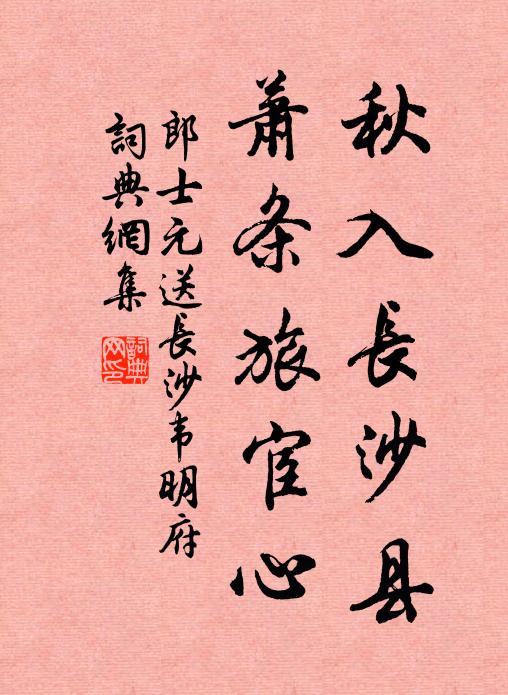 秋入長沙县
蕭条旅宦心
郎士元送長沙韦明府
詞典網集
詞典网印